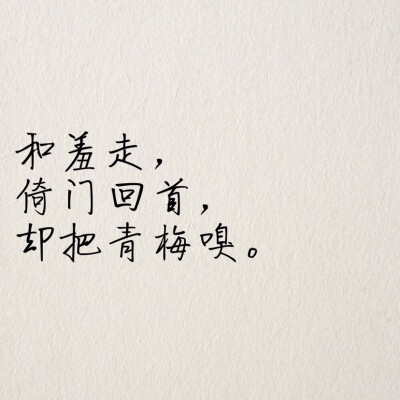 和羞走，
倚门回首，
却把青梅嗅。